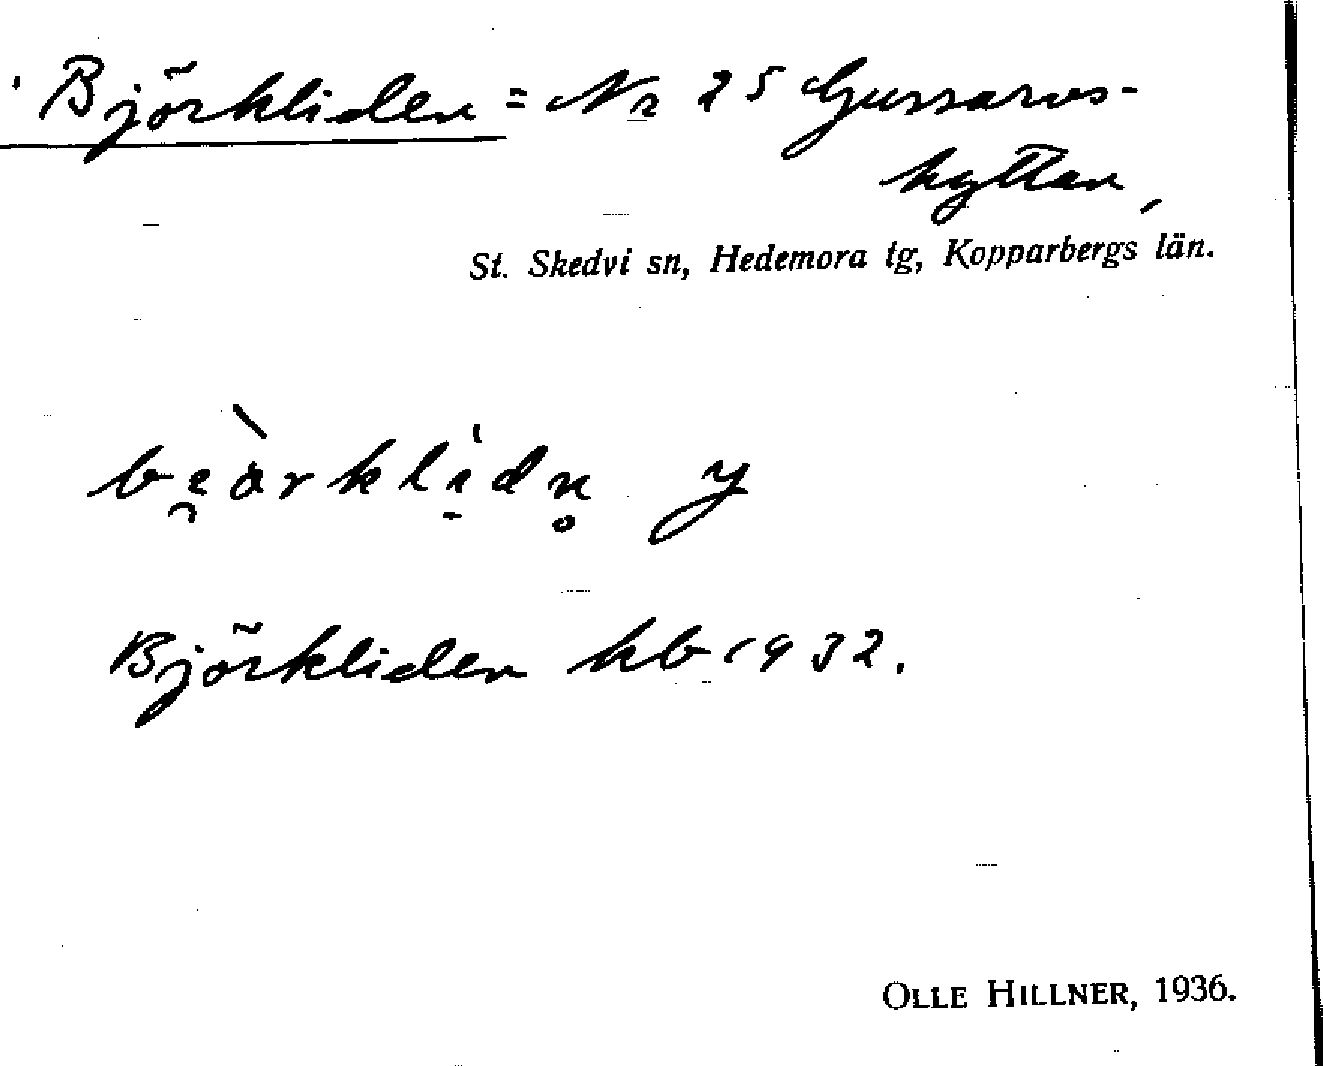 Björkliden = Nr 25 Gussarvs-
hyttan,
St. Skedvi sn, Hedemora tg, Kopparbergs län.
be̯àrkli̠̍dn̥ y
Björkliden hb 1932.
OLLE HILLNER, 1936.